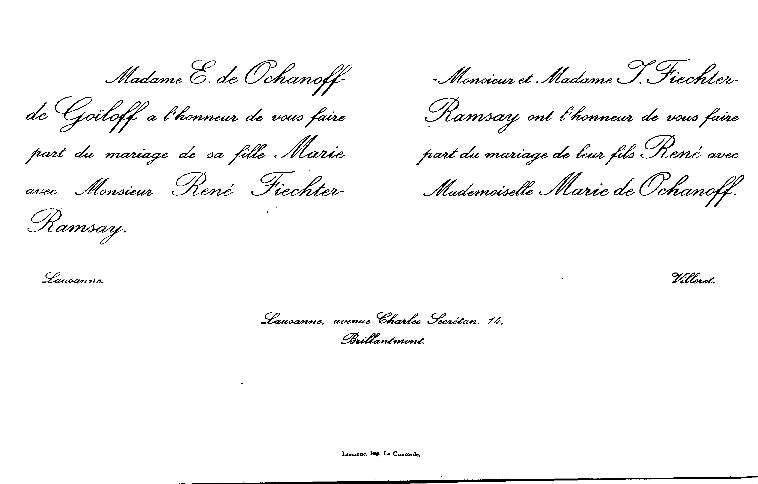 Madame E. de Ochanoff-
de Goïloff a l'honneur de vous faire
part du mariage de sa fille Marie
avec Monsieur René Fiechter-
Ramsay.
Lausanne.
Monsieur et Madame J. Fiechter-
Ramsay ont l'honneur de vous faire
part du mariage de leur fils René avec
Mademoiselle Marie de Ochanoff.
Villeret.
Lausanne, avenue Charles Secrétan, 14,
Brillantmont.
Lausanne, Imp. La Concorde.